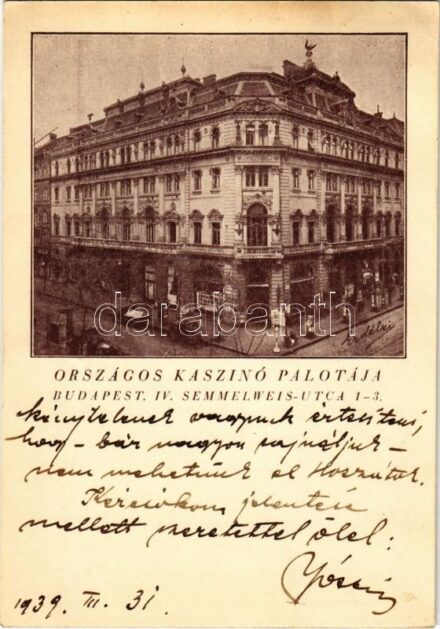 darabanth
ORSZÁGOS KASZINÓ PALOTÁJA
BUDAPEST, IV. SEMMELWEIS-UTCA 1–3.
kénytelenek vagyunk értesíteni,
hogy – bár nagyon sajnáljuk –
nem mehetünk el Hozzátok.
Kézcsókom jelentése
mellett szeretettel ölel:
1939. III. 31